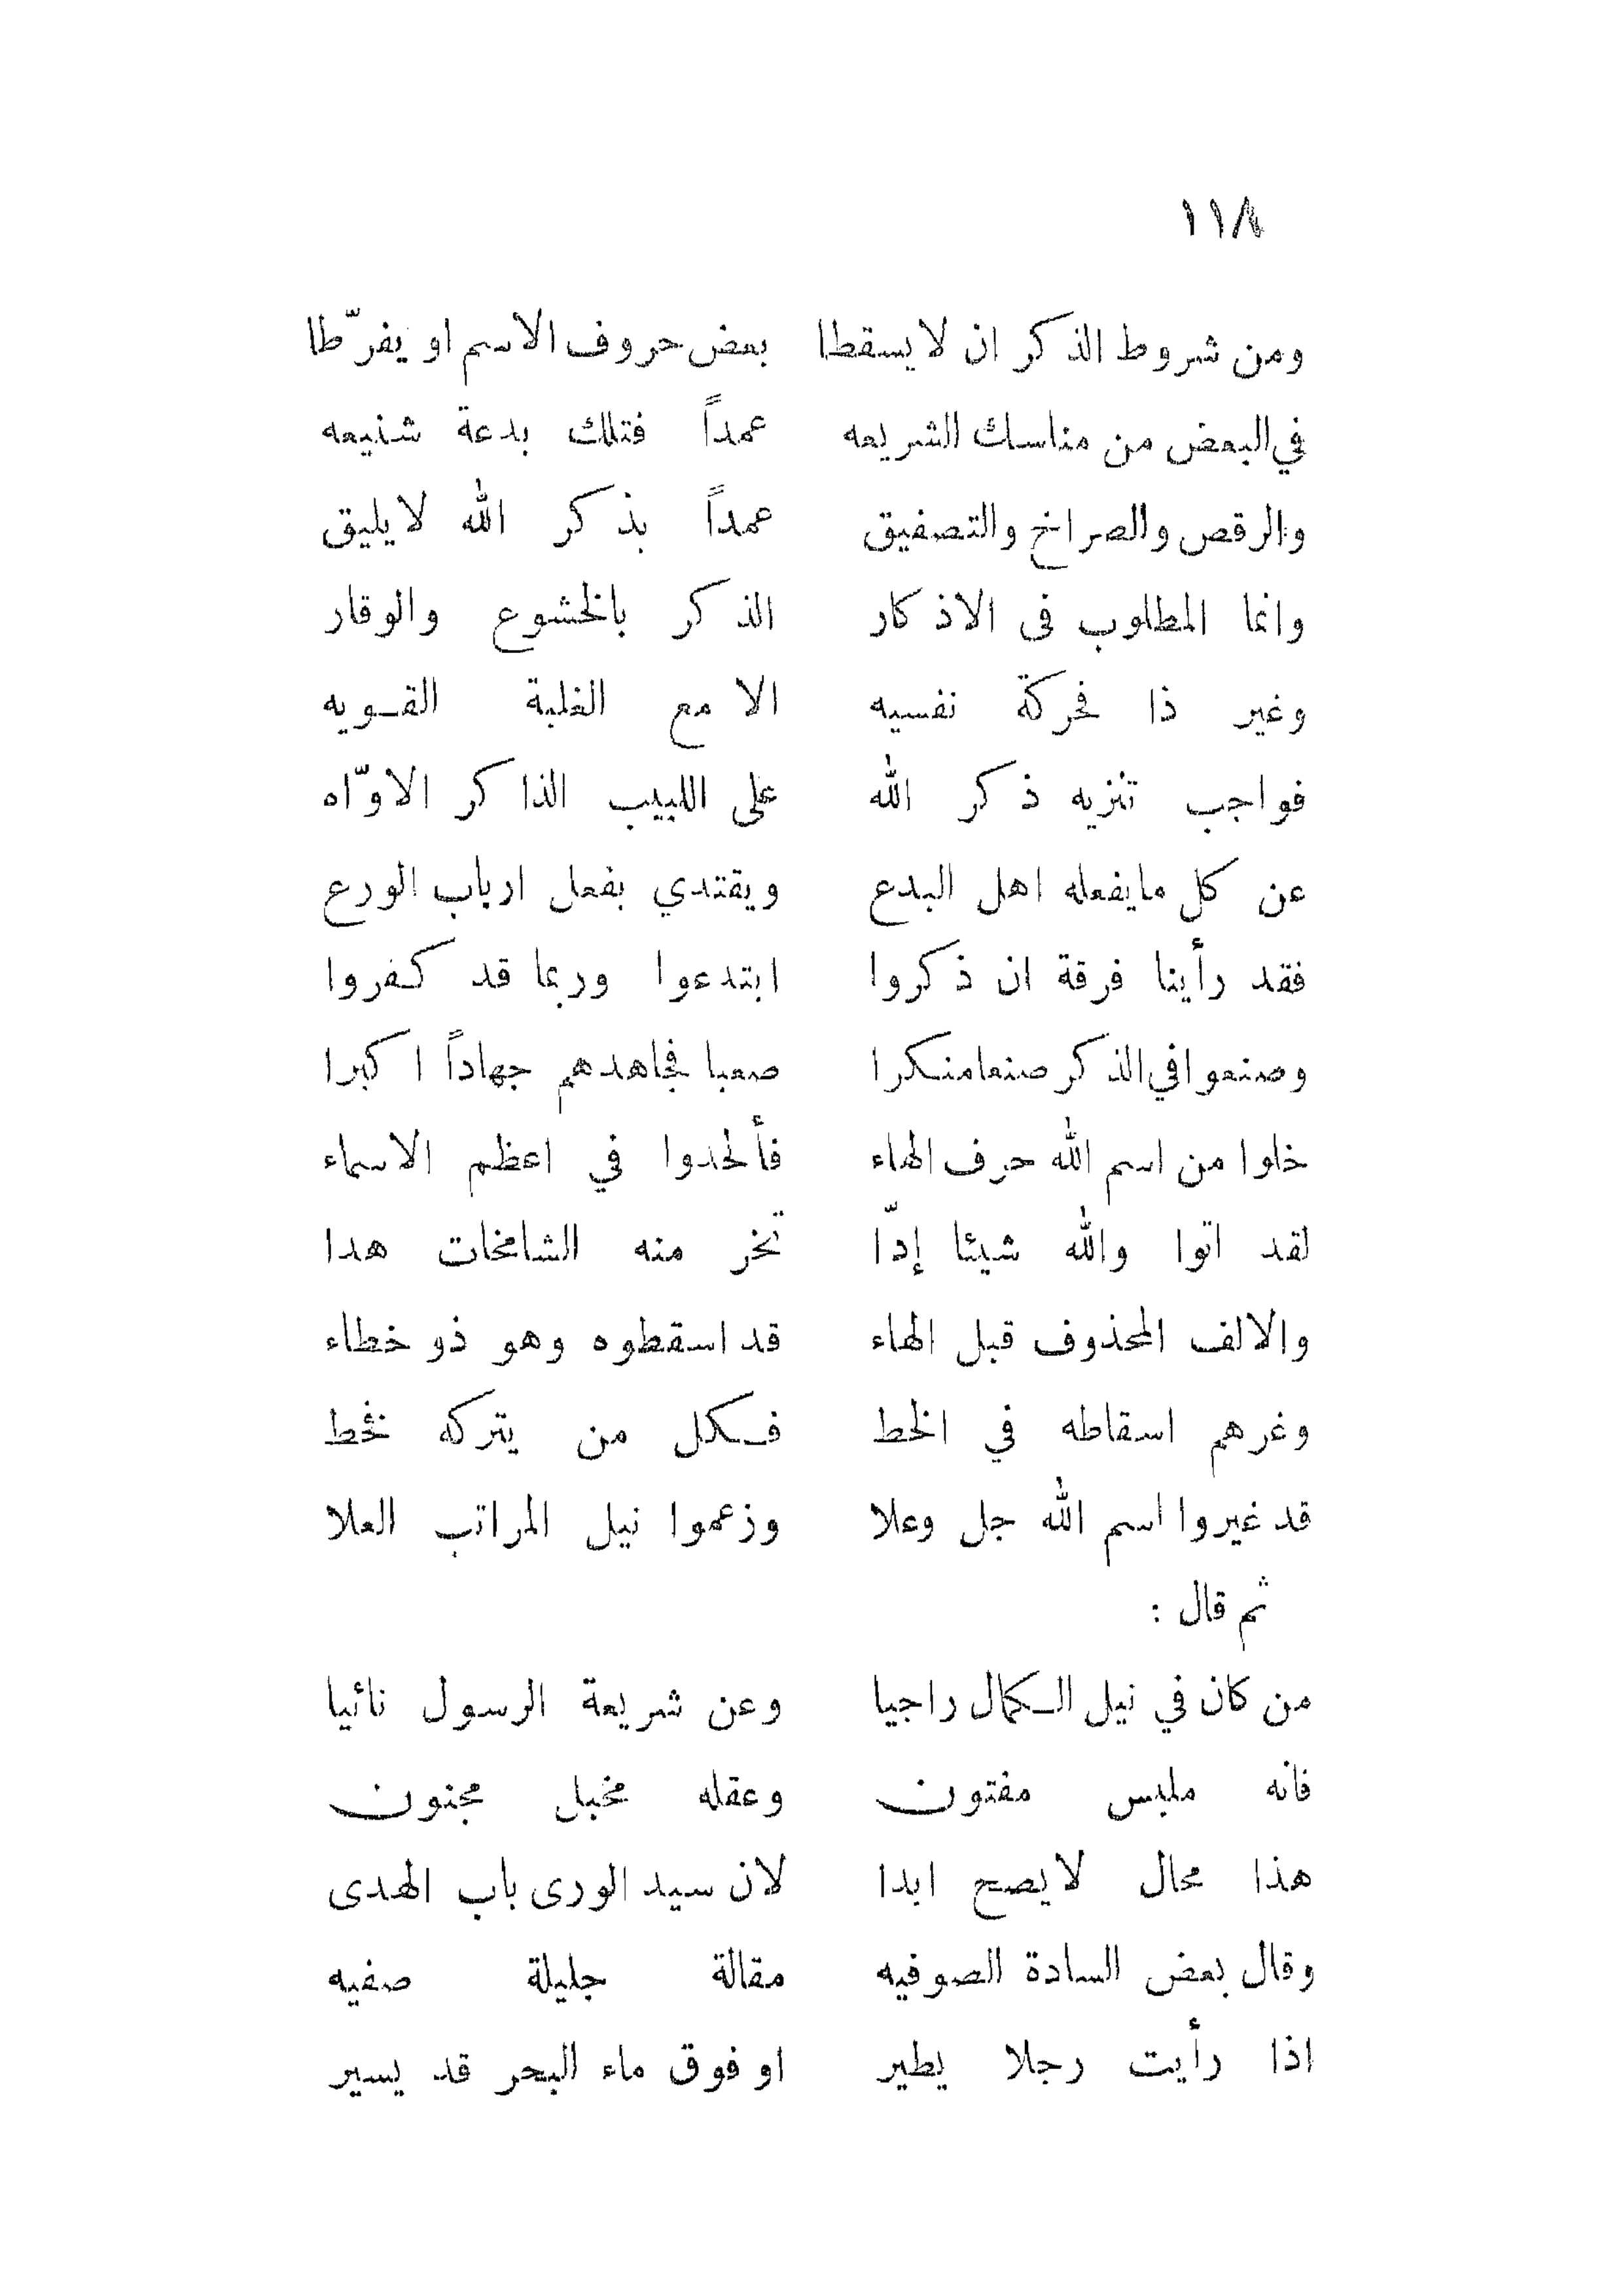 ١١٨
ومن شروط الذكر ان لايسقطا بعض حروف الاسم او يفرّطا
في البعض من مناسك الشريعه عمداً فتلك بدعة شنيعه
والرقص والصراخ والتصفيق عمداً بذكر الله لايليق
وانما المطلوب فى الاذكار الذكر بالخشوع والوقار
وغير ذا فحركة نفسيه الا مع الغلبة القويه
فواجب تنزيه ذكر الله على اللبيب الذاكر الاوّاه
عن كل مايفعله اهل البدع ويقتدي بفعل ارباب الورع
فقد رأينا فرقة ان ذكروا ابتدعوا وربما قد كفروا
وصنعوا في الذكر صنعا منكرا صعبا فجاهدهم جهاداً اكبرا
خلوا من اسم الله حرف الهاء فألحدوا في اعظم الاسماء
لقد اتوا والله شيئا إدّا تخر منه الشامخات هدا
والالف المحذوف قبل الهاء قد اسقطوه وهو ذو خطاء
وغرهم اسقاطه في الخط فكل من يتركه مخط
قد غيروا اسم الله جل وعلا وزعموا نيل المراتب العلا
ثم قال :
من كان في نيل الكمال راجيا وعن شريعة الرسول نائيا
فانه ملبس مفتون وعقله مخبل مجنون
هذا محال لايصح ابدا لان سيد الورى باب الهدى
وقال بعض السادة الصوفيه مقالة جليلة صفيه
اذا رأيت رجلا يطير او فوق ماء البحر قد يسير